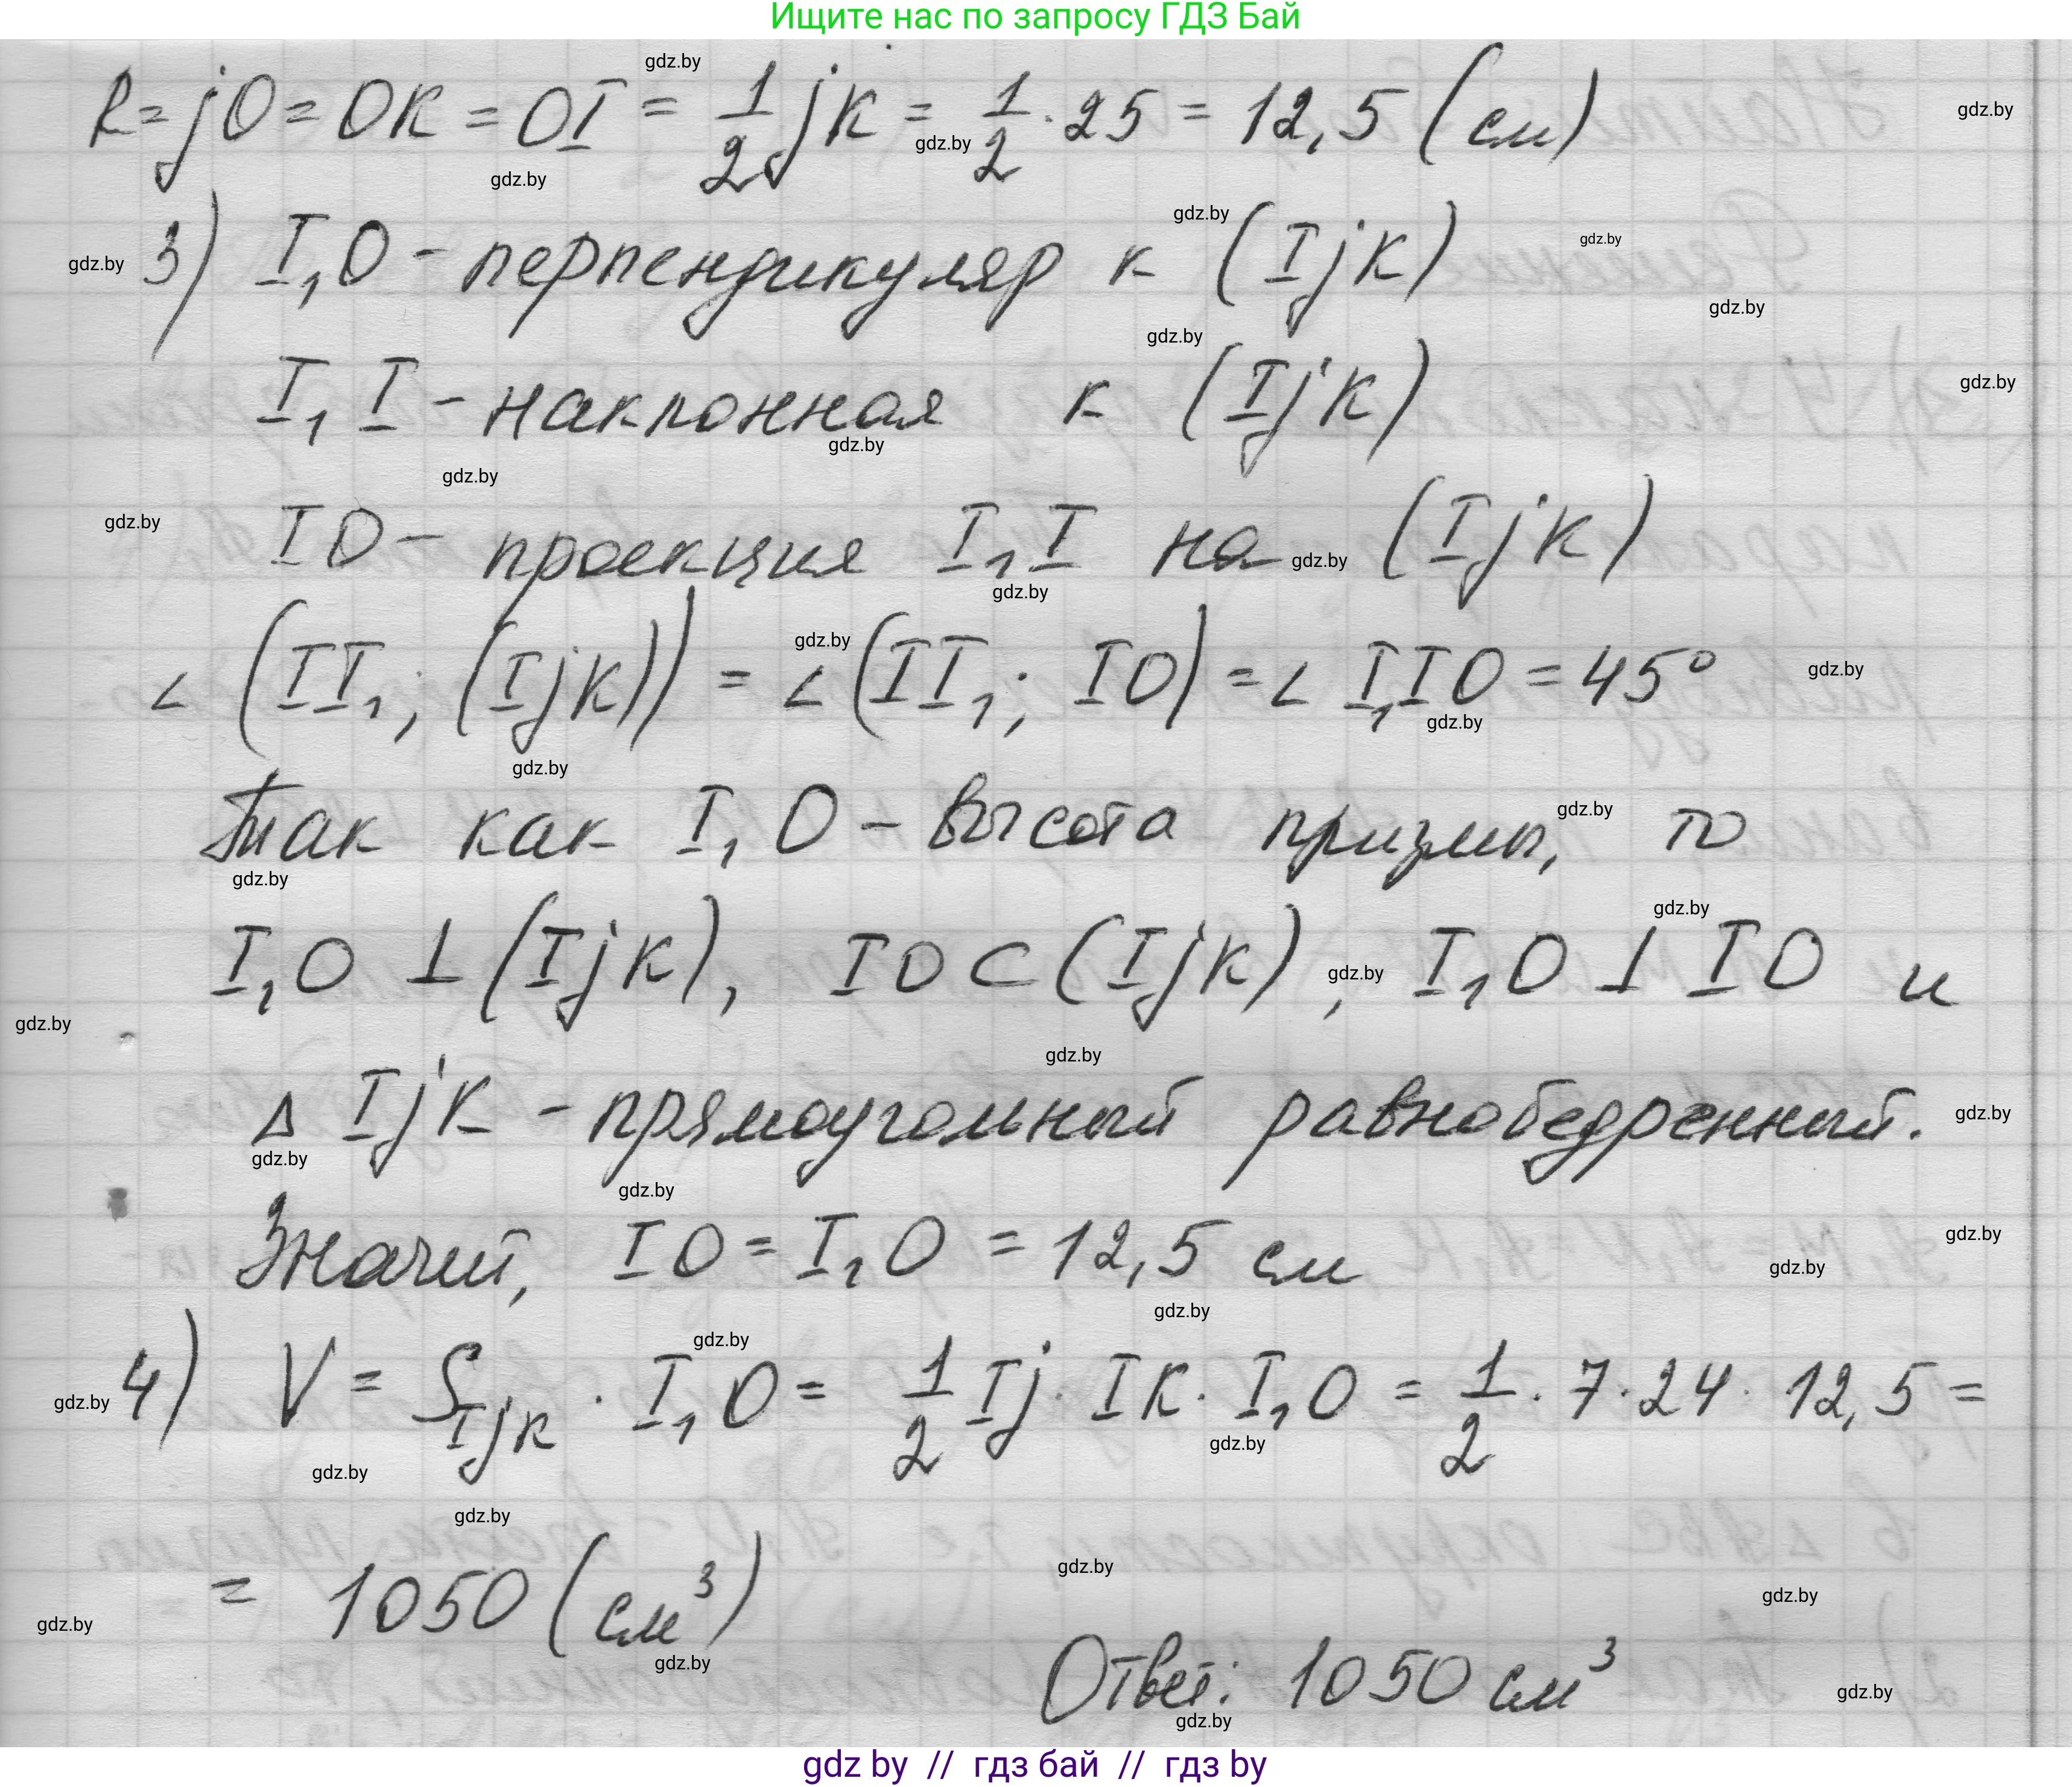 Ищите нас по запросу ГДЗ Бай
R = jO = OK = OI = 1/2 jK = 1/2 · 25 = 12,5 (см)
3) I₁O - перпендикуляр к (IjK)
I₁I - наклонная к (IjK)
IO - проекция I₁I на (IjK)
∠(II₁; (IjK)) = ∠(II₁; IO) = ∠I₁IO = 45°
Так как I₁O - высота призмы, то
I₁O ⊥ (IjK), IO ⊂ (IjK), I₁O ⊥ IO и
Δ IjK - прямоугольный равнобедренный.
Значит, IO = I₁O = 12,5 см
4) V = S_IjK · I₁O = 1/2 Ij · IK · I₁O = 1/2 · 7 · 24 · 12,5 =
= 1050 (см³)
Ответ: 1050 см³
gdz by // гдз бай // гдз by